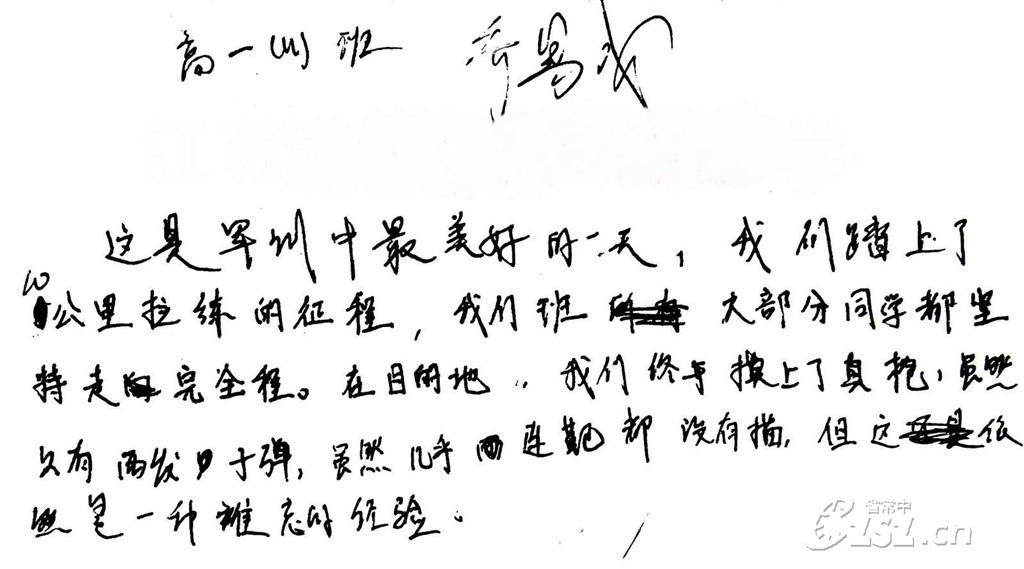 高一(11)班
这是军训中最美好的一天,我们踏上了
10公里拉练的征程,我们班大部分同学都坚
持走完全程。在目的地,我们终于摸上了真枪,虽然
只有两发子弹,虽然几乎连靶都没有描,但这依
然是一种难忘的经验。
省常中